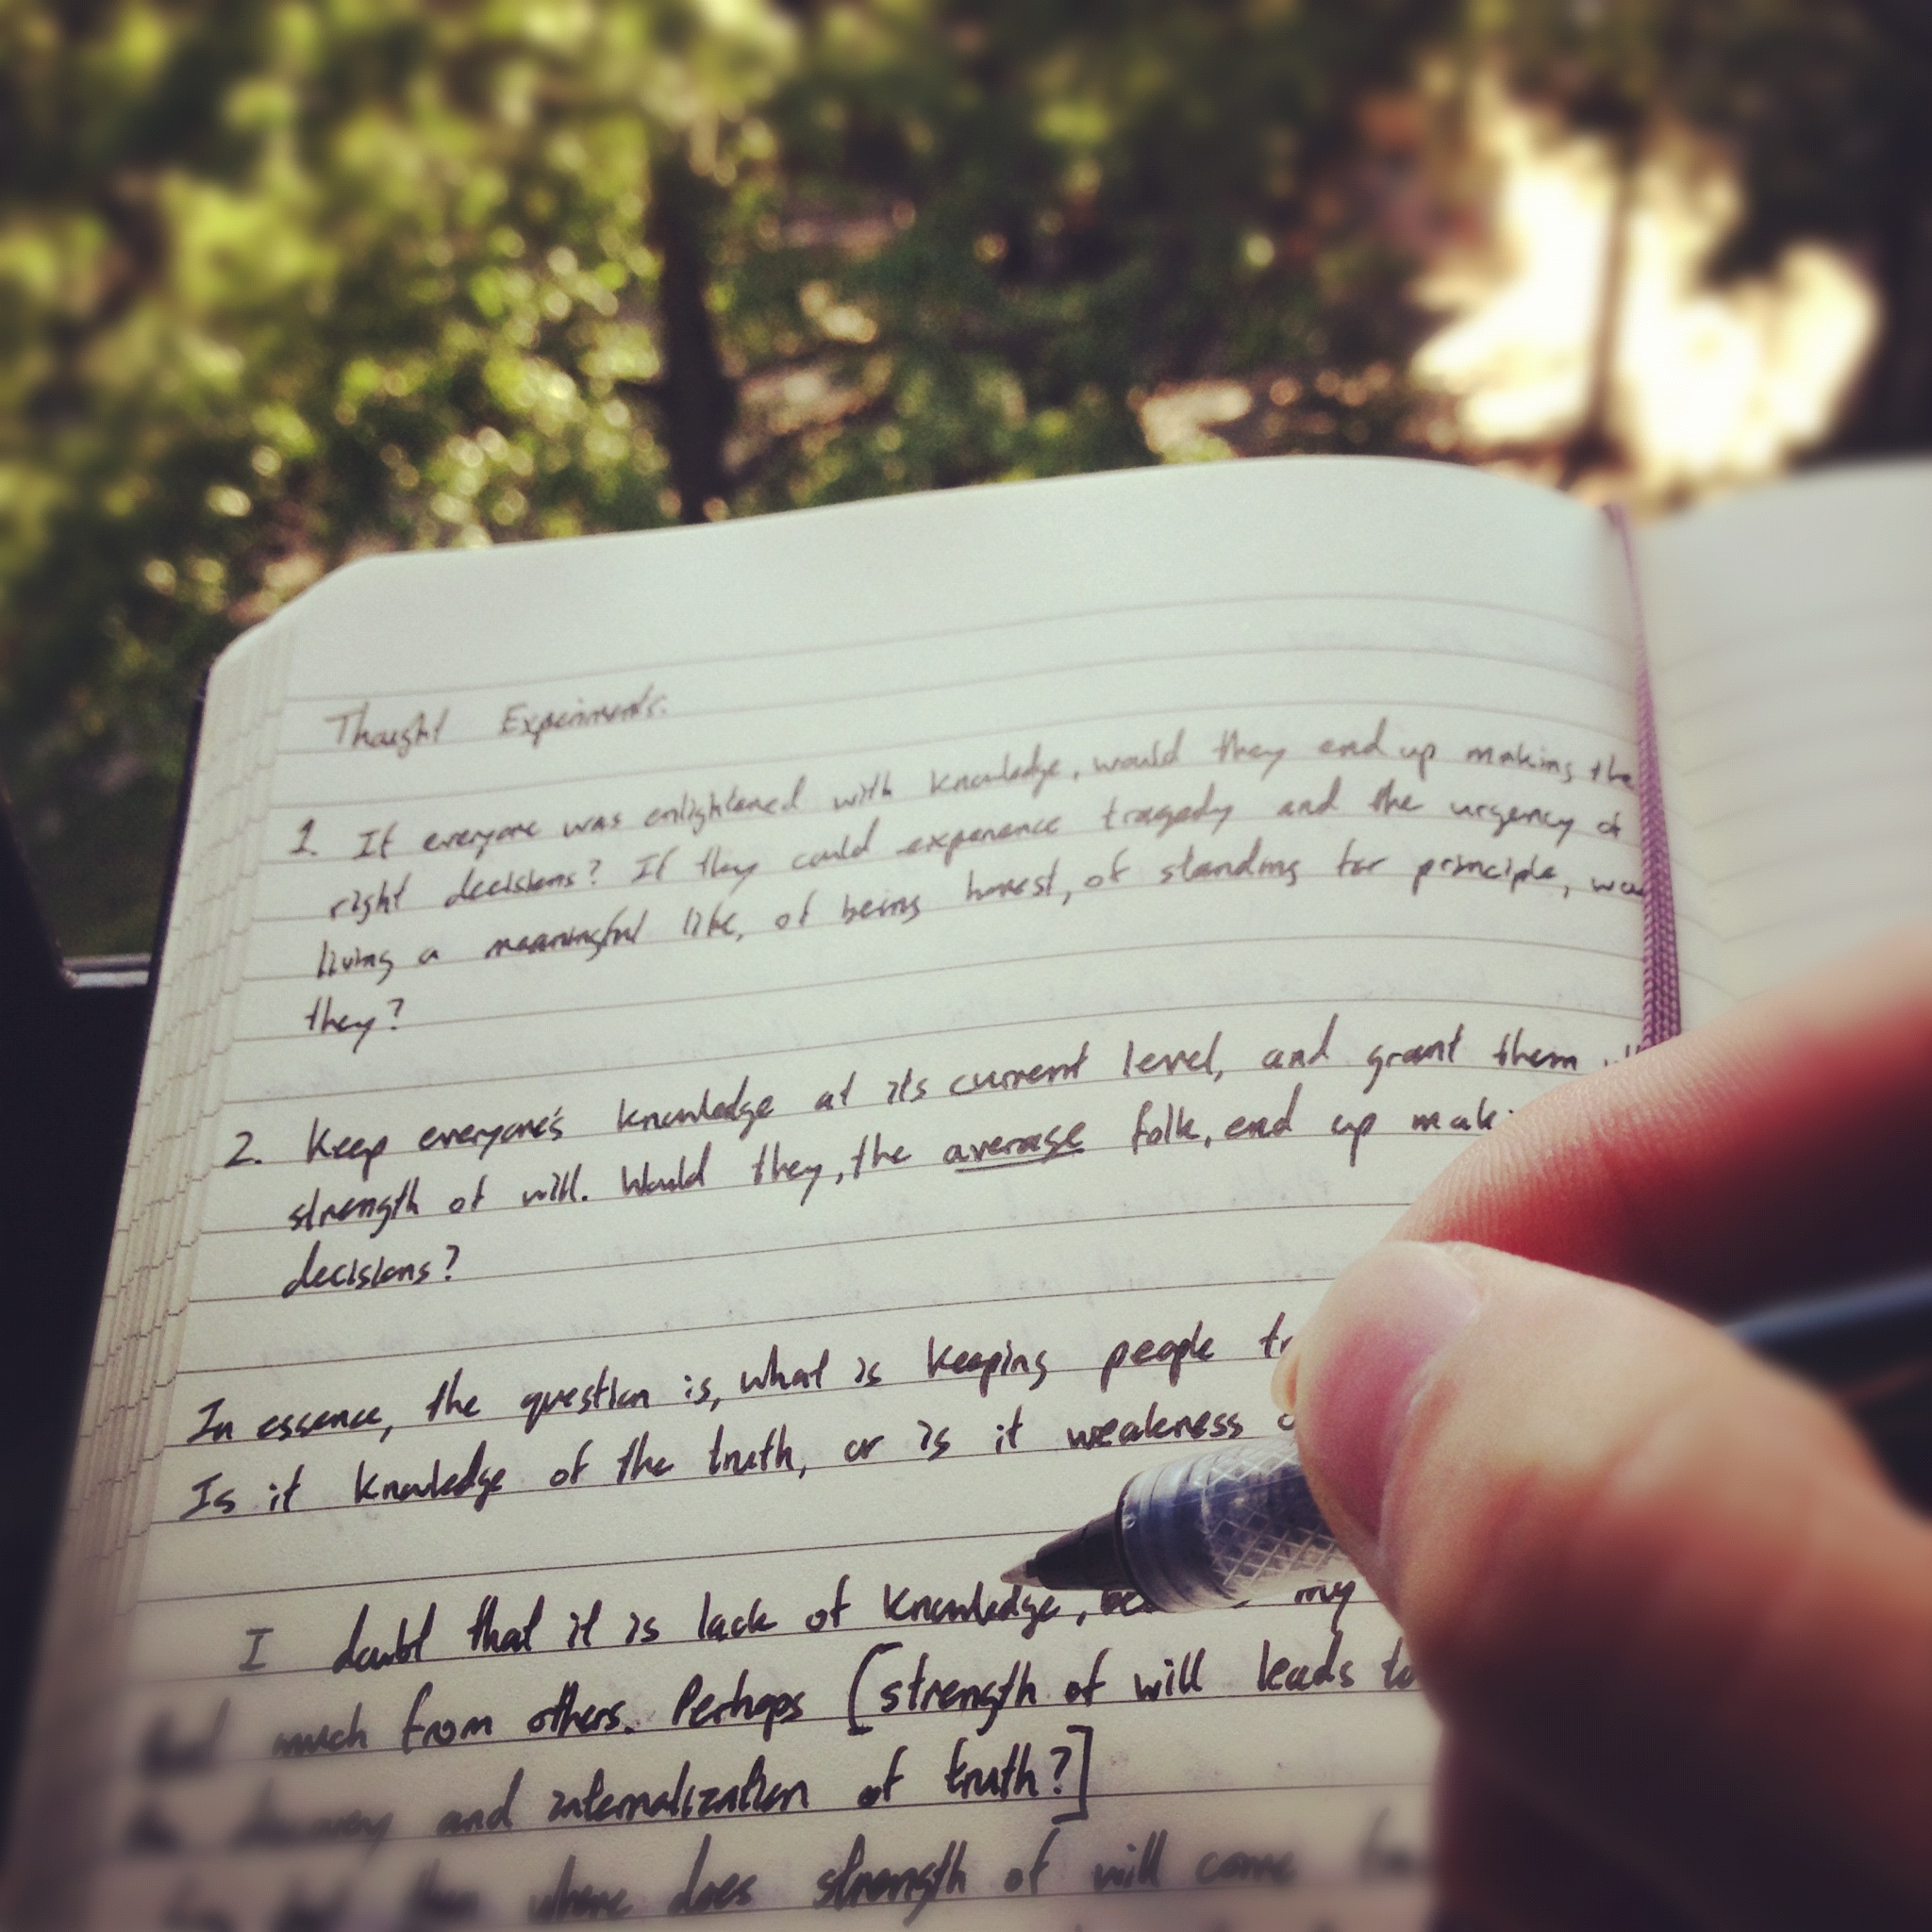 Thought Experiments.
1. If everyone was enlightened with knowledge, would they end up making the
right decisions? If they could experience tragedy and the urgency of
living a meaningful life, of being honest, of standing for principle,
they?
2. Keep everyone's knowledge at its current level, and grant them
strength of will. Would they, the average folk, end up
decisions?
In essence, the question is, what is keeping people
Is it knowledge of the truth, or is it weakness
I doubt that it is lack of knowledge, my
much from others. Perhaps [strength of will leads to
and internalization of truth?]
where does strength of will come